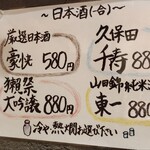 ~日本酒(一合)~
厳選日本酒
豪快 580円
久保田
千寿 88
獺祭
大吟醸 880円
山田錦純米
東一 88
冷や、熱燗お選びださい